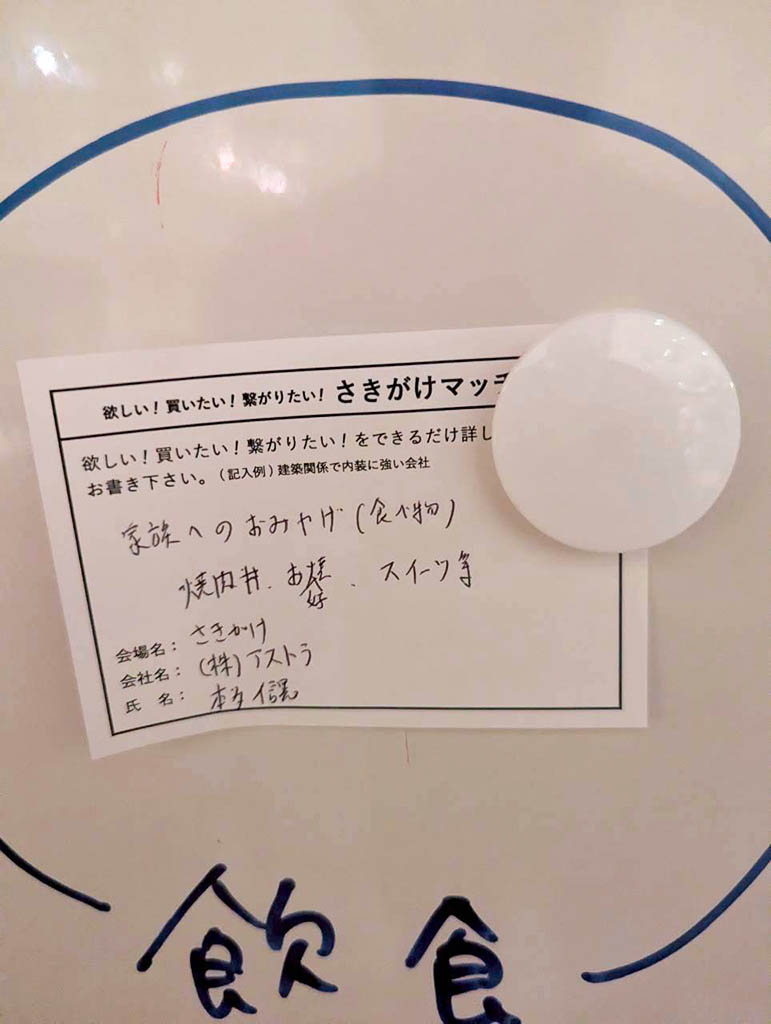 欲しい！買いたい！繋がりたい！ さきがけマッ
欲しい！買いたい！繋がりたい！をできるだけ詳し
お書き下さい。（記入例）建築関係で内装に強い会社
家族へのおみやげ（食べ物）
焼肉弁、お好焼、スイーツ等
会場名： さきがけ
会社名： （株）アストラ
氏 名： 本多
飲食